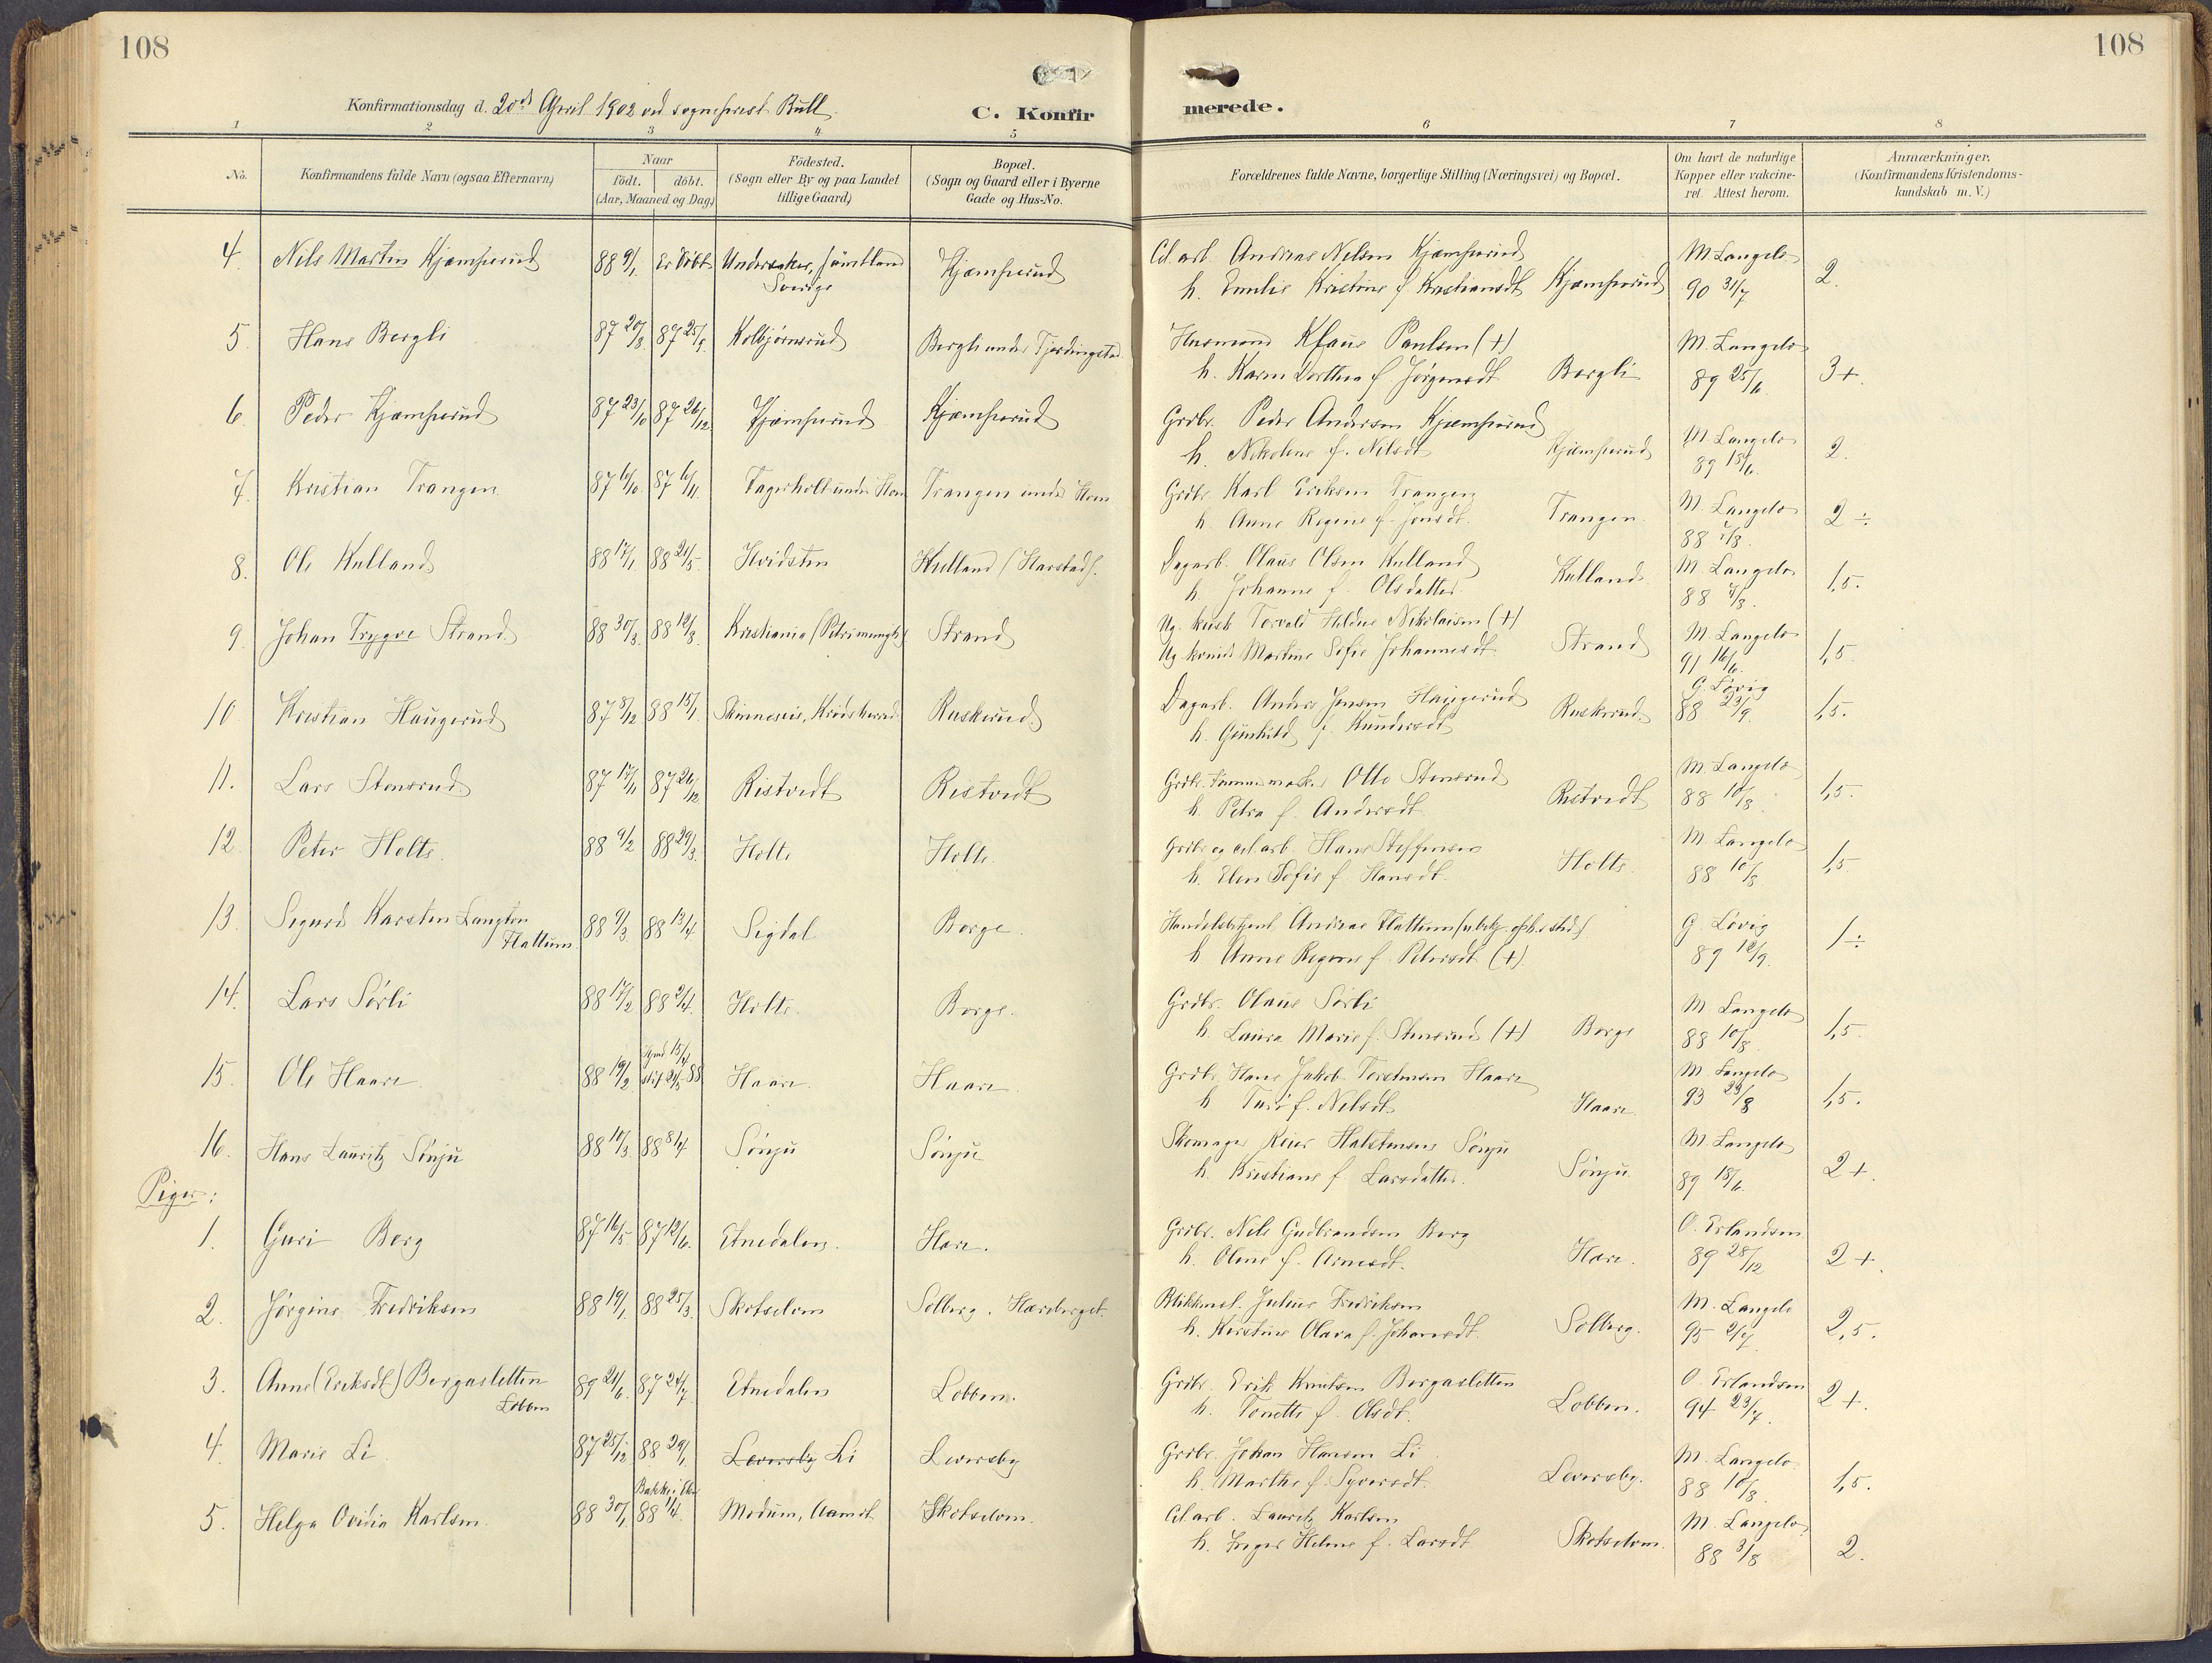 108
108
Konfirmationsdag d. 20de April 1902 ved sogneprest Bull.
C. Konfir
merede.
1 2 3 4 5 6 7 8
No.
Konfirmandens fulde Navn (ogsaa Efternavn)
Naar
födt. döbt.
(Aar, Maaned og Dag)
Födested.
(Sogn eller By og paa Landet
tillige Gaard)
Bopæl.
(Sogn og Gaard eller i Byerne
Gade og Hus-No.
Forældrenes fulde Navne, borgerlige Stilling (Næringsvei) og Bopæl.
Om havt de naturlige
Kopper eller vakcine-
ret. Attest herom.
Anmærkninger.
(Konfirmandens Kristendoms-
kundskab m. V.)
4. Nils Martin Kjæmperud 88 9/1 Er döbt Undersaker, Jämtland Kjæmperud Cel. arb. Andreas Nilsen Kjæmperud M. Langelo 2.
Sverige h. Emilie Kristine f. Kristiansdt. Kjæmperud 90 31/7
5. Hans Bergli 87 20/8 87 25/9 Kolbjørnsrud Bergli under Tjerdingstad Husmand Klaus Paulsen (+) M. Langelo
h. Karen Dorthea f. Jørgensdt. Bergli 89 25/6 3+.
6. Peder Kjæmperud 87 23/10 87 26/12 Kjæmperud Kjæmperud Grdbr. Peder Andersen Kjæmperud M. Langelo
h. Nikoline f. Nilsdt. Kjæmperud 89 15/6. 2.
7. Kristian Trangen 87 6/10 87 6/11. Fagerholt under Horn Trangen under Horn Grdbr. Karl Eriksen Trangen M. Langelo
h. Anne Regine f. Jensdt. Trangen 88 2÷
8. Ole Kulland 88 17/1 88 21/5 Hvidsten Kulland (Harstad). Dagarb. Olaus Olsen Kulland M. Langelo
h. Johanne f. Olsdatter Kulland 88 1,5.
9. Johan Trygve Strand 88 30/3 88 12/8 Kristiania (Petri menigh.) Strand Ug. kusk Torvald Hildus Nikolaisen (+) M. Langelo
Ug. kvind. Martine Sofie Johannesdt. Strand 91 16/6. 1,5
10 Kristian Haugerud 87 5/12 88 15/1 Skinneseie, Krødsherred Ruskerud Dagarb. Anders Jensen Haugerud G. Lövig
h. Gunhild f. Knudsdt. Ruskerud 88 23/9. 1,5.
11. Lars Stensrud 87 17/11 87 26/12 Ristvedt Ristvedt Grdbr. Otto Stensrud M. Langelo
h. Petra f. Andersdt. Ristvedt 88 10/8 1,5.
12 Peter Holte. 88 9/2 88 29/3. Holte Holte. Grdbr. og cel.arb. Hans Steffensen M. Langelo
h. Elen Sofie f. Hansdt. Holte 88 10/8 1,5
13 Sigurd Karsten Langton 88 9/3 88 13/4 Sigdal Borge. Handelsbetjent Andreas Flattum (ubekj. oph.sted) G. Lövig
Flattum. h. Anne Regine f. Petersdt. (+) 89 12/9. 1÷
14. Lars Sörli 88 17/2 88 2/4. Holte. Borge. Grdbr. Olaus Sörli M. Langelo
h. Laura Marie f. Stensrud (+) Borge 88 10/8 1,5
15. Ole Haare 88 19/2. hjmd. 15/4 stf. 21/5 88 Haare. Haare. Grdbr. Hans Jakob Torstensen Haare M. Langelo
h. Turi f. Nilsdt. Haare. 93 23/8 1,5.
16. Hans Lauritz Sönju 88 10/3 88 8/4 Sönju Sönju Skomager Reier Halstensen Sönju M. Langelo
h. Kristiane f. Larsdatter. Sönju 89 18/6. 2+.
Piger:
1. Guri Berg 87 16/5 87 12/6. Etnedalen. Hare. Grdbr. Nils Gudbrandsen Berg O. Erlandsen
h. Oline f. Arnesdt. Hare. 89 28/12 2+.
2. Jörgine Fredriksen 88 19/1. 88 25/3. Skotselven Solberg. Hærsberget. Blikkensl. Julius Fredriksen M. Langelo
h. Kristine Olava f. Johansdt. Solberg. 95 2/7 2,5.
3. Anne (Eriksdt.) Bergasletten 89 21/6. 87 24/7 Etnedalen Lobben. Grdbr. Erik Knutsen Bergasletten O. Erlandsen
Lobben h. Tonette f. Olsdt. Lobben. 94 23/7. 2+.
4. Marie Li 87 25/12 88 29/1. Leversby Li Leversby Grdbr. Johan Hansen Li M. Langelo
h. Marthe f. Syversdt. Leversby. 88 10/8. 1,5.
5. Helga Ovidia Karlsen. 88 30/1 88 1/4. Modum, Aamot Skotselven. Cel. arb. Lauritz Karlsen M. Langelo
h. Inger Helene f. Larsdt. Skotselven. 88 3/8 2.